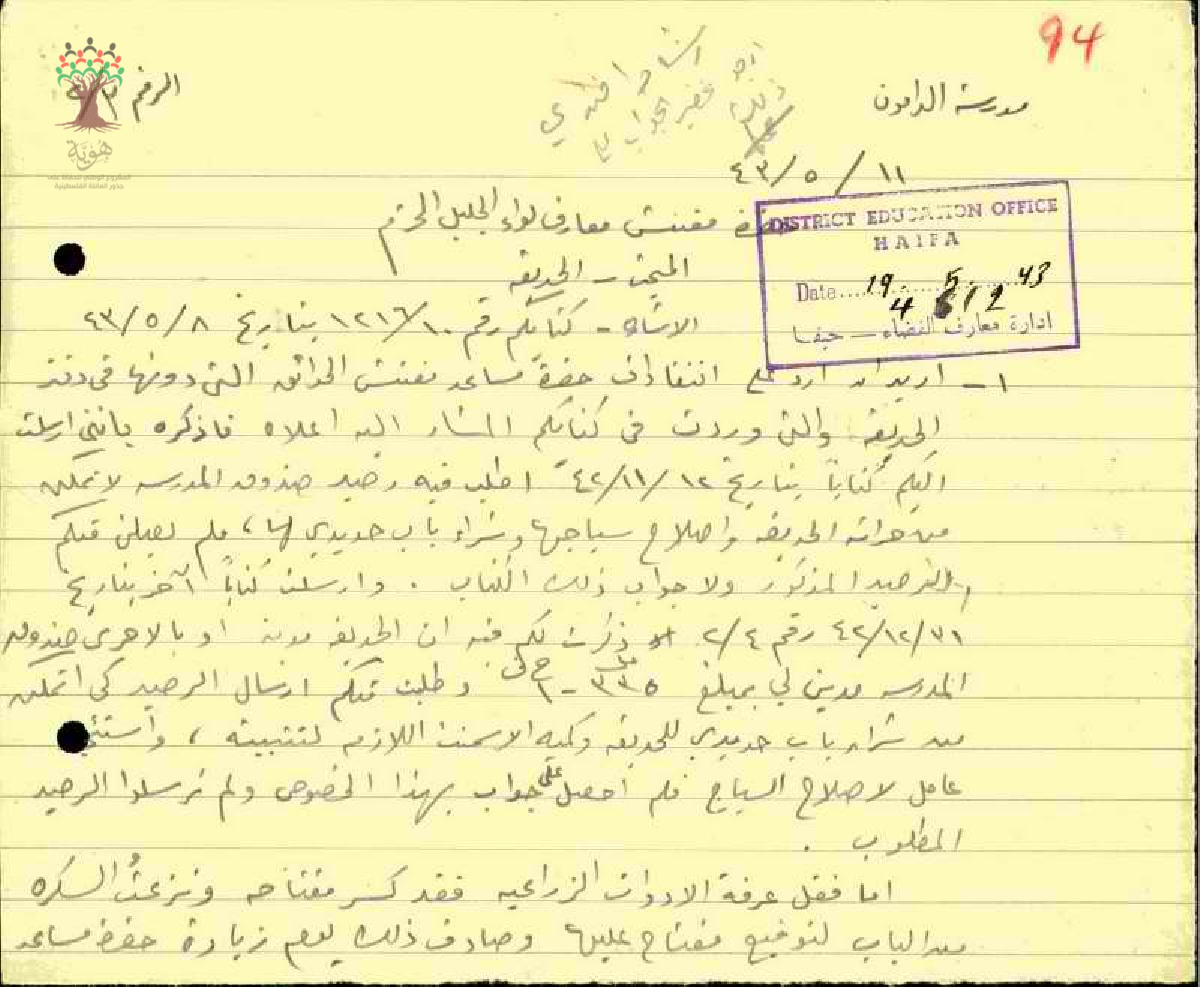 94
مدرسة الدامون
الرقم
هوية
٤٣/٥/١١
DISTRICT EDUCATION OFFICE
HAIFA
Date 19 5 43
4 6/2
ادارة معارف القضاء — حيفا
حضرة مفتش معارف لواء الجليل المحترم
المبحث - الحديقه
الاشاره - كتابكم رقم ١٢١٦/١٠ بتاريخ ٤٣/٥/٨
١- اريد ان ارد على انتقادات حضرة مساعد مفتش الحدائق التي دونها في دفتر
الحديقه والتي وردت في كتابكم المشار اليه اعلاه فاذكره بانني ارسلت
اليكم كتاباً بتاريخ ٤٢/١١/١٢ اطلب فيه رصيد صندوق المدرسه لاتمكن
من حراثة الحديقه واصلاح سياجها وشراء باب حديدي لها، فلم يصلني منكم
الرصيد المذكور ولا جواب ذلك الكتاب . وارسلت كتاباً آخر بتاريخ
٤٢/١٢/٣١ رقم ٢/٤ ذكرت لكم فيه ان الحديقه مدينة او بالاحرى صندوق
المدرسه مدين لي بمبلغ ٣٣٥ - ١ وطلبت منكم ارسال الرصيد كي اتمكن
من شراء باب حديدي للحديقه وكميه الاسمنت اللازمه لتثبيته ، واستئجار
عامل لاصلاح السياج فلم احصل على جواب بهذا الخصوص ولم ترسلوا الرصيد
المطلوب .
اما قفل غرفة الادوات الزراعيه فقد كسر مفتاحه ونزعتُ السكره
من الباب لتوضيع مفتاح عليها وصادف ذلك يوم زيارة حضرة مساعد